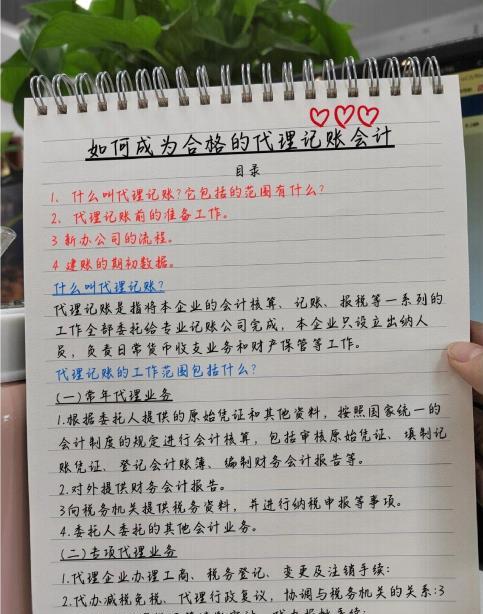 如何成为合格的代理记账会计
目录
1、什么叫代理记账?它包括的范围有什么?
2、代理记账前的准备工作。
3 新办公司的流程。
4 建账的期初数据。
什么叫代理记账?
代理记账是指将本企业的会计核算、记账、报税等一系列的
工作全部委托给专业记账公司完成，本企业只设立出纳人
员，负责日常货币收支业务和财产保管等工作。
代理记账的工作范围包括什么?
(一)常年代理业务
1.根据委托人提供的原始凭证和其他资料，按照国家统一的
会计制度的规定进行会计核算，包括审核原始凭证、填制记
账凭证、登记会计账簿、编制财务会计报告等。
2.对外提供财务会计报告。
3向税务机关提供税务资料，并进行纳税申报等事项。
4.委托人委托的其他会计业务。
(二)专项代理业务
1.代理企业办理工商、税务登记、变更及注销手续:
2.代办减税免税、代理行政复议，协调与税务机关的关系:3